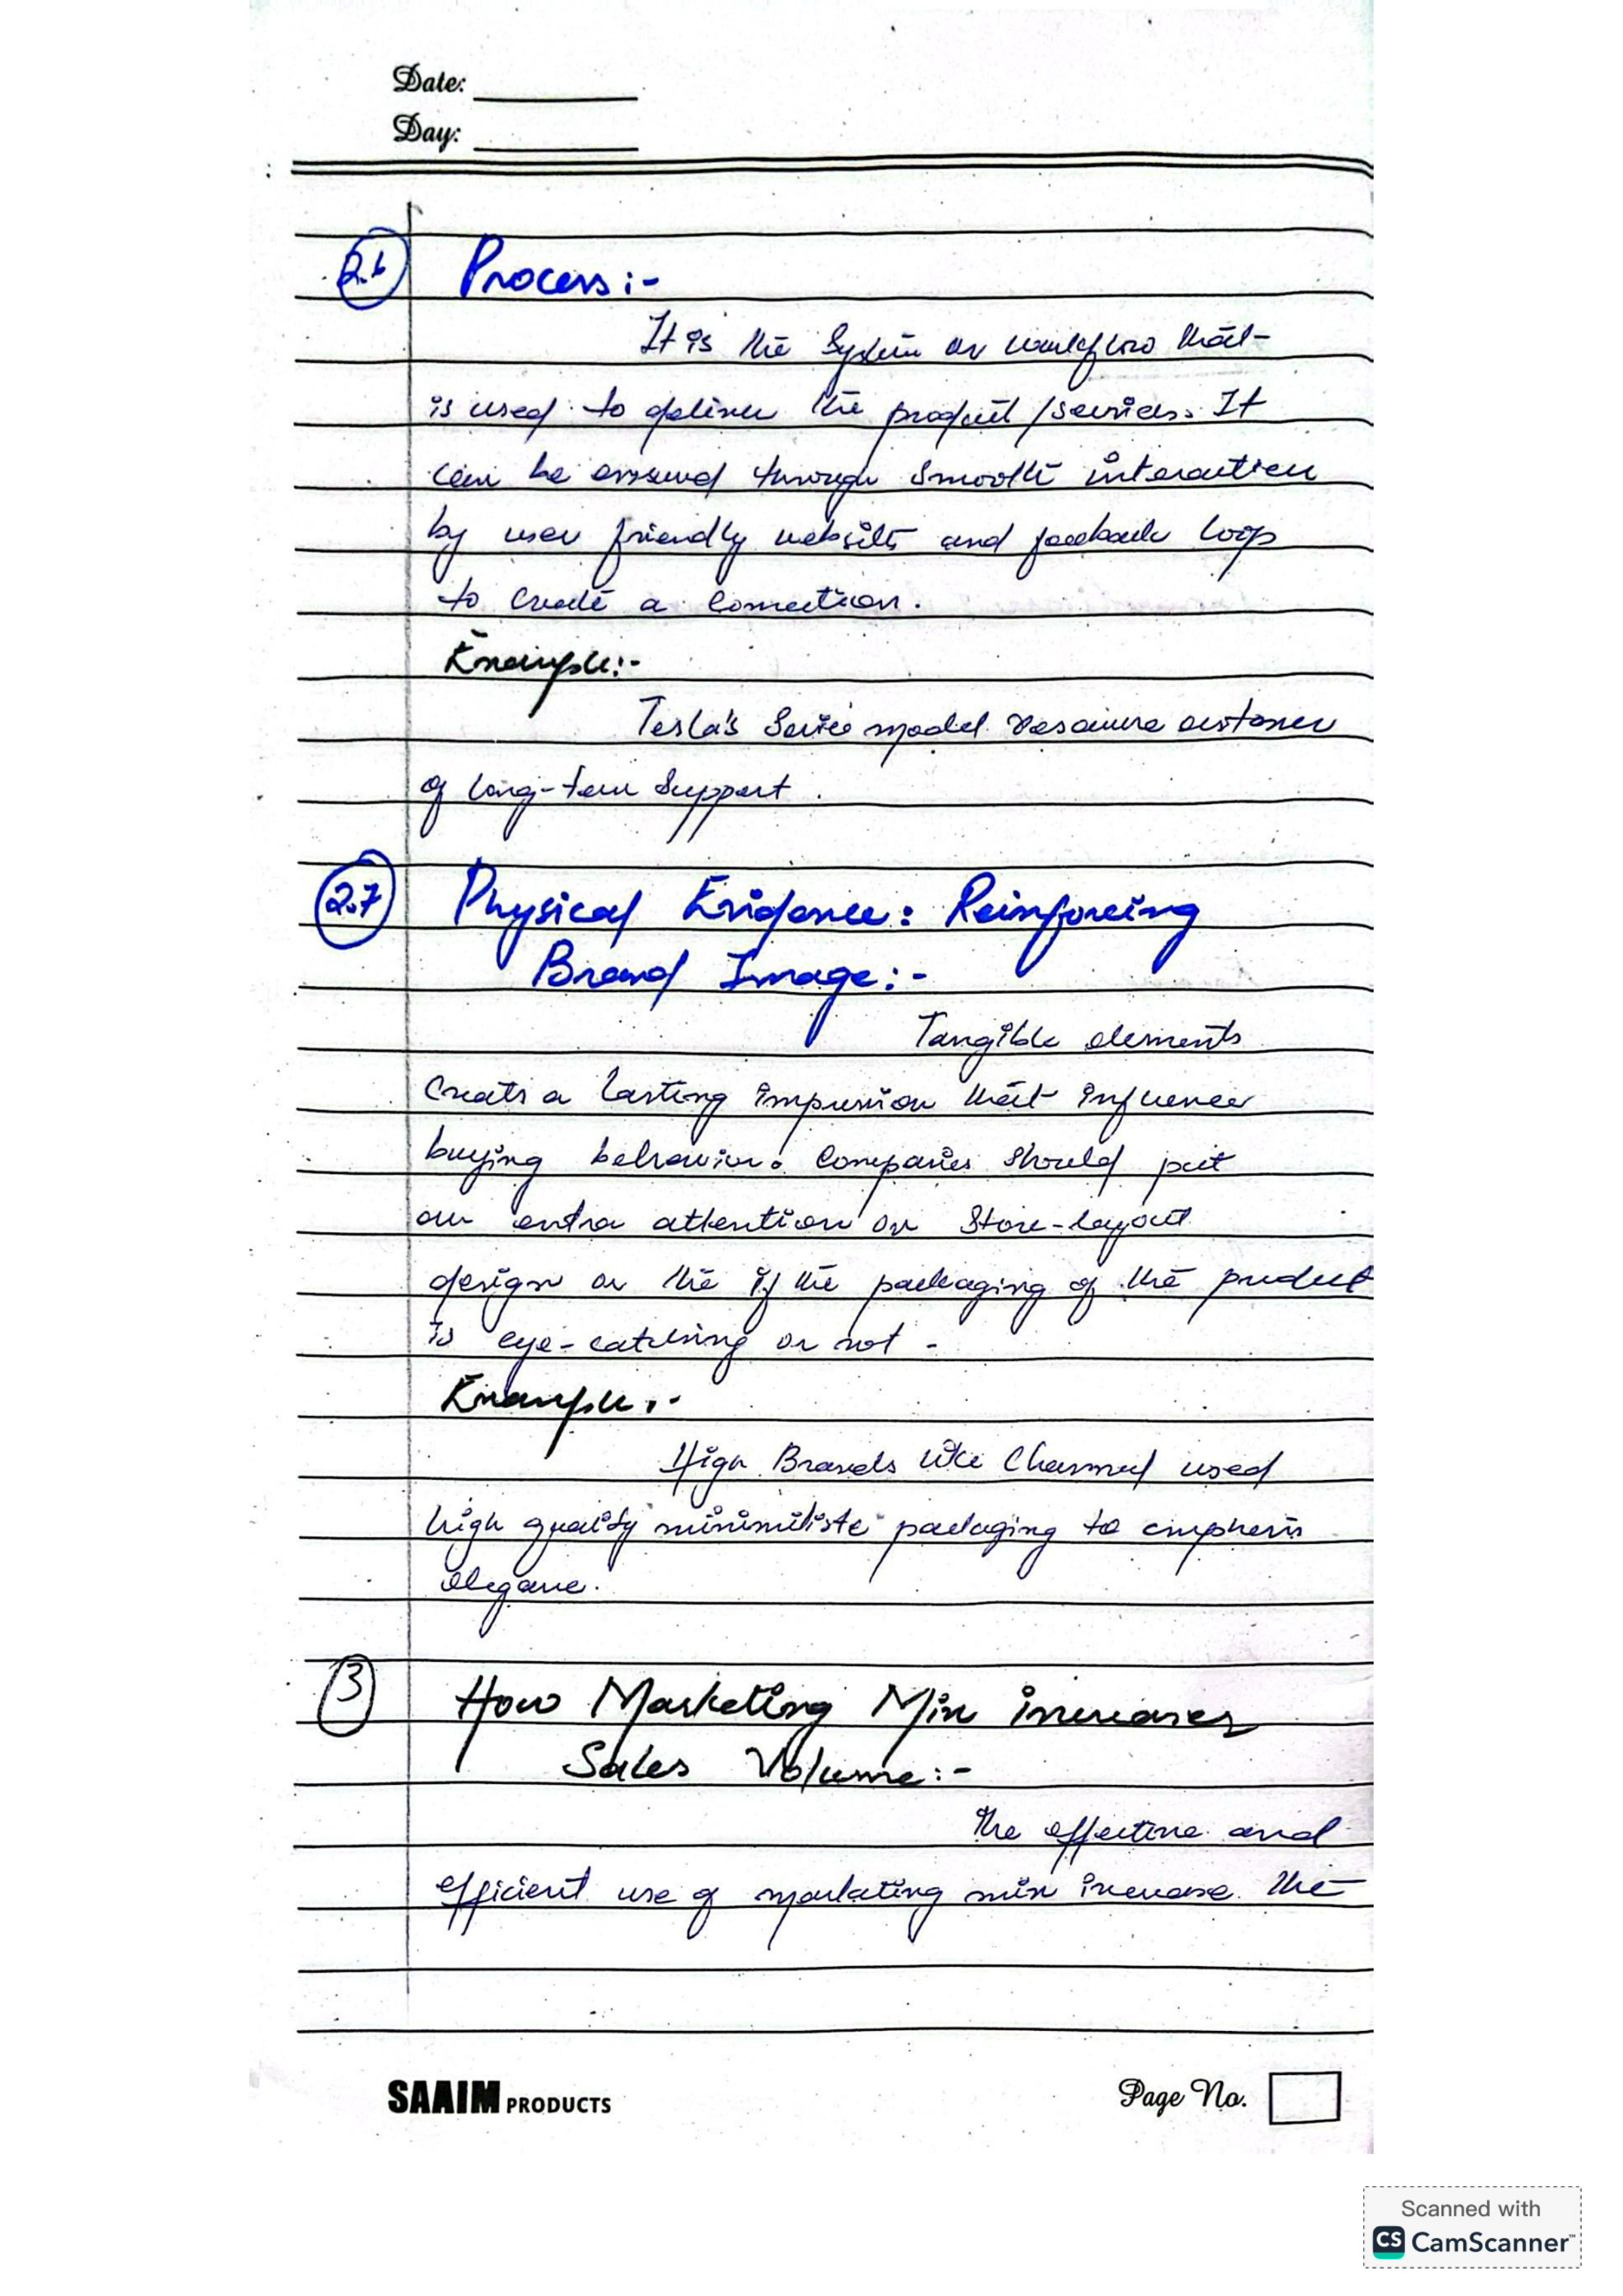 Date:
Day:
2.6 Process:-
It is the System or workflow that
is used to deliver the product / services. It
can be ensured through smooth interaction
by user friendly website and feedback loop
to create a connection.
Example:-
Tesla's Service model
of long-term support.
2.7 Physical Evidence: Reinforcing
Brand Image:-
Tangible elements
creats a lasting impression that influences
buying behavior. Companies should put
an extra attention on Store-layout
design or the if the packaging of the product
is eye-catching or not -
Example:-
High Brands like Channel used
high quality packaging to
elegance.
3 How Marketing Mix increases
Sales Volume:-
The effective and
efficient use of marketing mix increase the
SAAIM PRODUCTS
Page No.
Scanned with
CS CamScanner